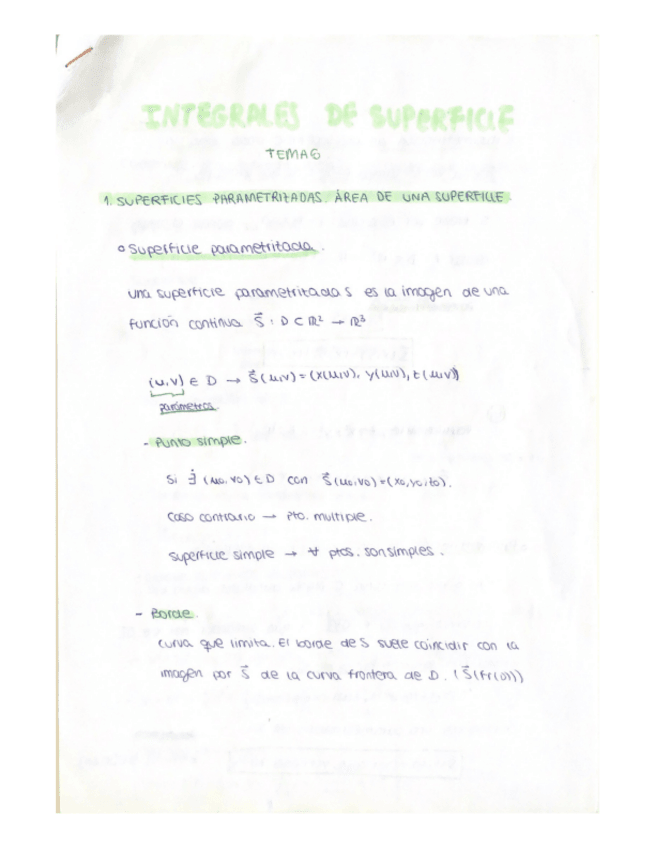 INTEGRALES DE SUPERFICIE
TEMA 6
1. SUPERFICIES PARAMETRIZADAS. ÁREA DE UNA SUPERFICIE.
Superficie parametrizada.
Una superficie parametrizada S es la imagen de una
función continua S⃗ : D ⊂ ℝ² → ℝ³
(u,v) ∈ D → S⃗(u,v) = (x(u,v), y(u,v), z(u,v))
parámetros
- Punto simple.
Si ∃̇ (u₀,v₀) ∈ D con S⃗(u₀,v₀)=(x₀,y₀,z₀).
Caso contrario → Pto. multiple.
Superficie simple → ∀ ptos. son simples.
- Borde.
Curva que limita. El borde de S suele coincidir con la
imagen por S⃗ de la curva frontera de D. (S⃗(Fr(D)))